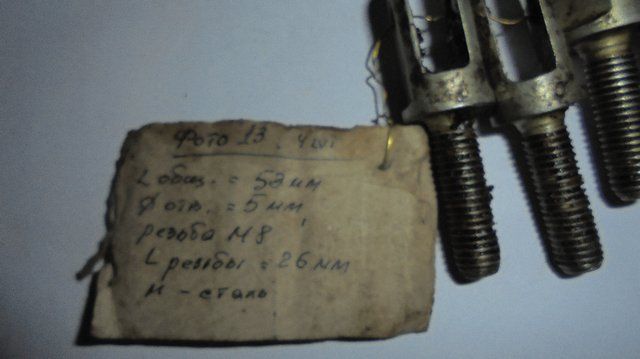 Фото 13. 4 шт.
L общ. = 58 мм
Ф отв. = 5 мм
резьба М8
L резьбы = 26 мм
М - сталь